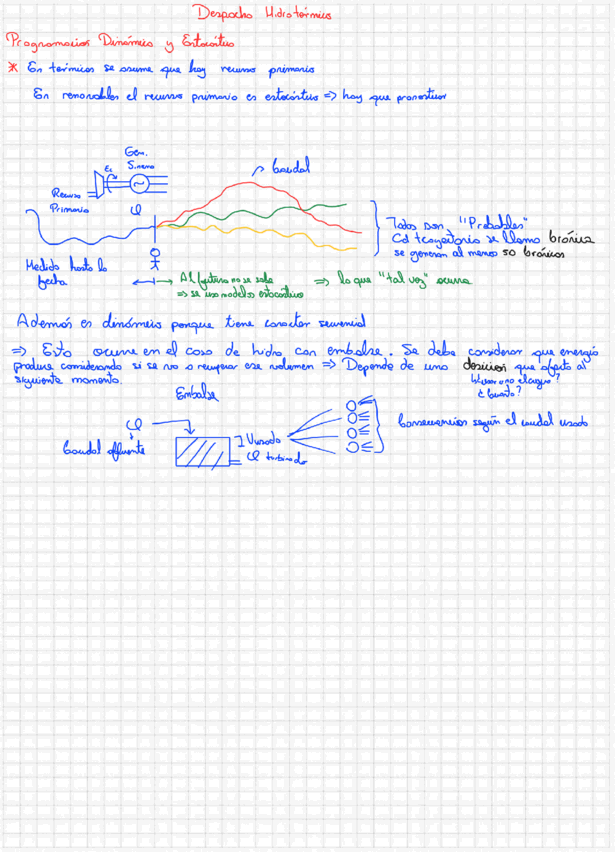 Despacho Hidrotérmico
Programación Dinámica y Estocástica
* En térmicas se asume que hay recurso primario
En renovables el recurso primario es estocástico => hay que pronosticar
Gen.
Sincro
Ec
Caudal
Recurso
Primario
φ
Todos son "Probables"
Cd trayectoria se llama crónica
se generan al menos 50 crónicas
Medido hasta la
fecha
Al futuro no se sabe => lo que "tal vez" ocurra
=> se usa modelos estocástico
Además es dinámico porque tiene caracter secuencial
=> Esto ocurre en el caso de hidro con embalse. Se debe considerar que energía
produce considerando si se va a recuperar ese volumen => Depende de una decision que afecta al
siguiente momento.
¿Uso el agua?
¿Cuanto?
Embalse
φ
Caudal afluente
Vusado
φ turbinado
Consecuencias según el caudal usado